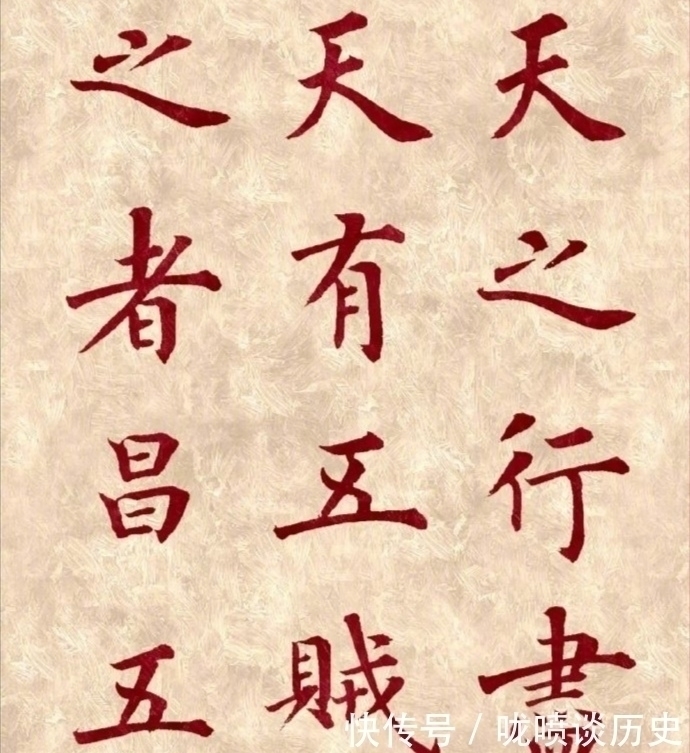 天之行盡
天有五賊
之者昌五
快传号 / 咙喷谈历史